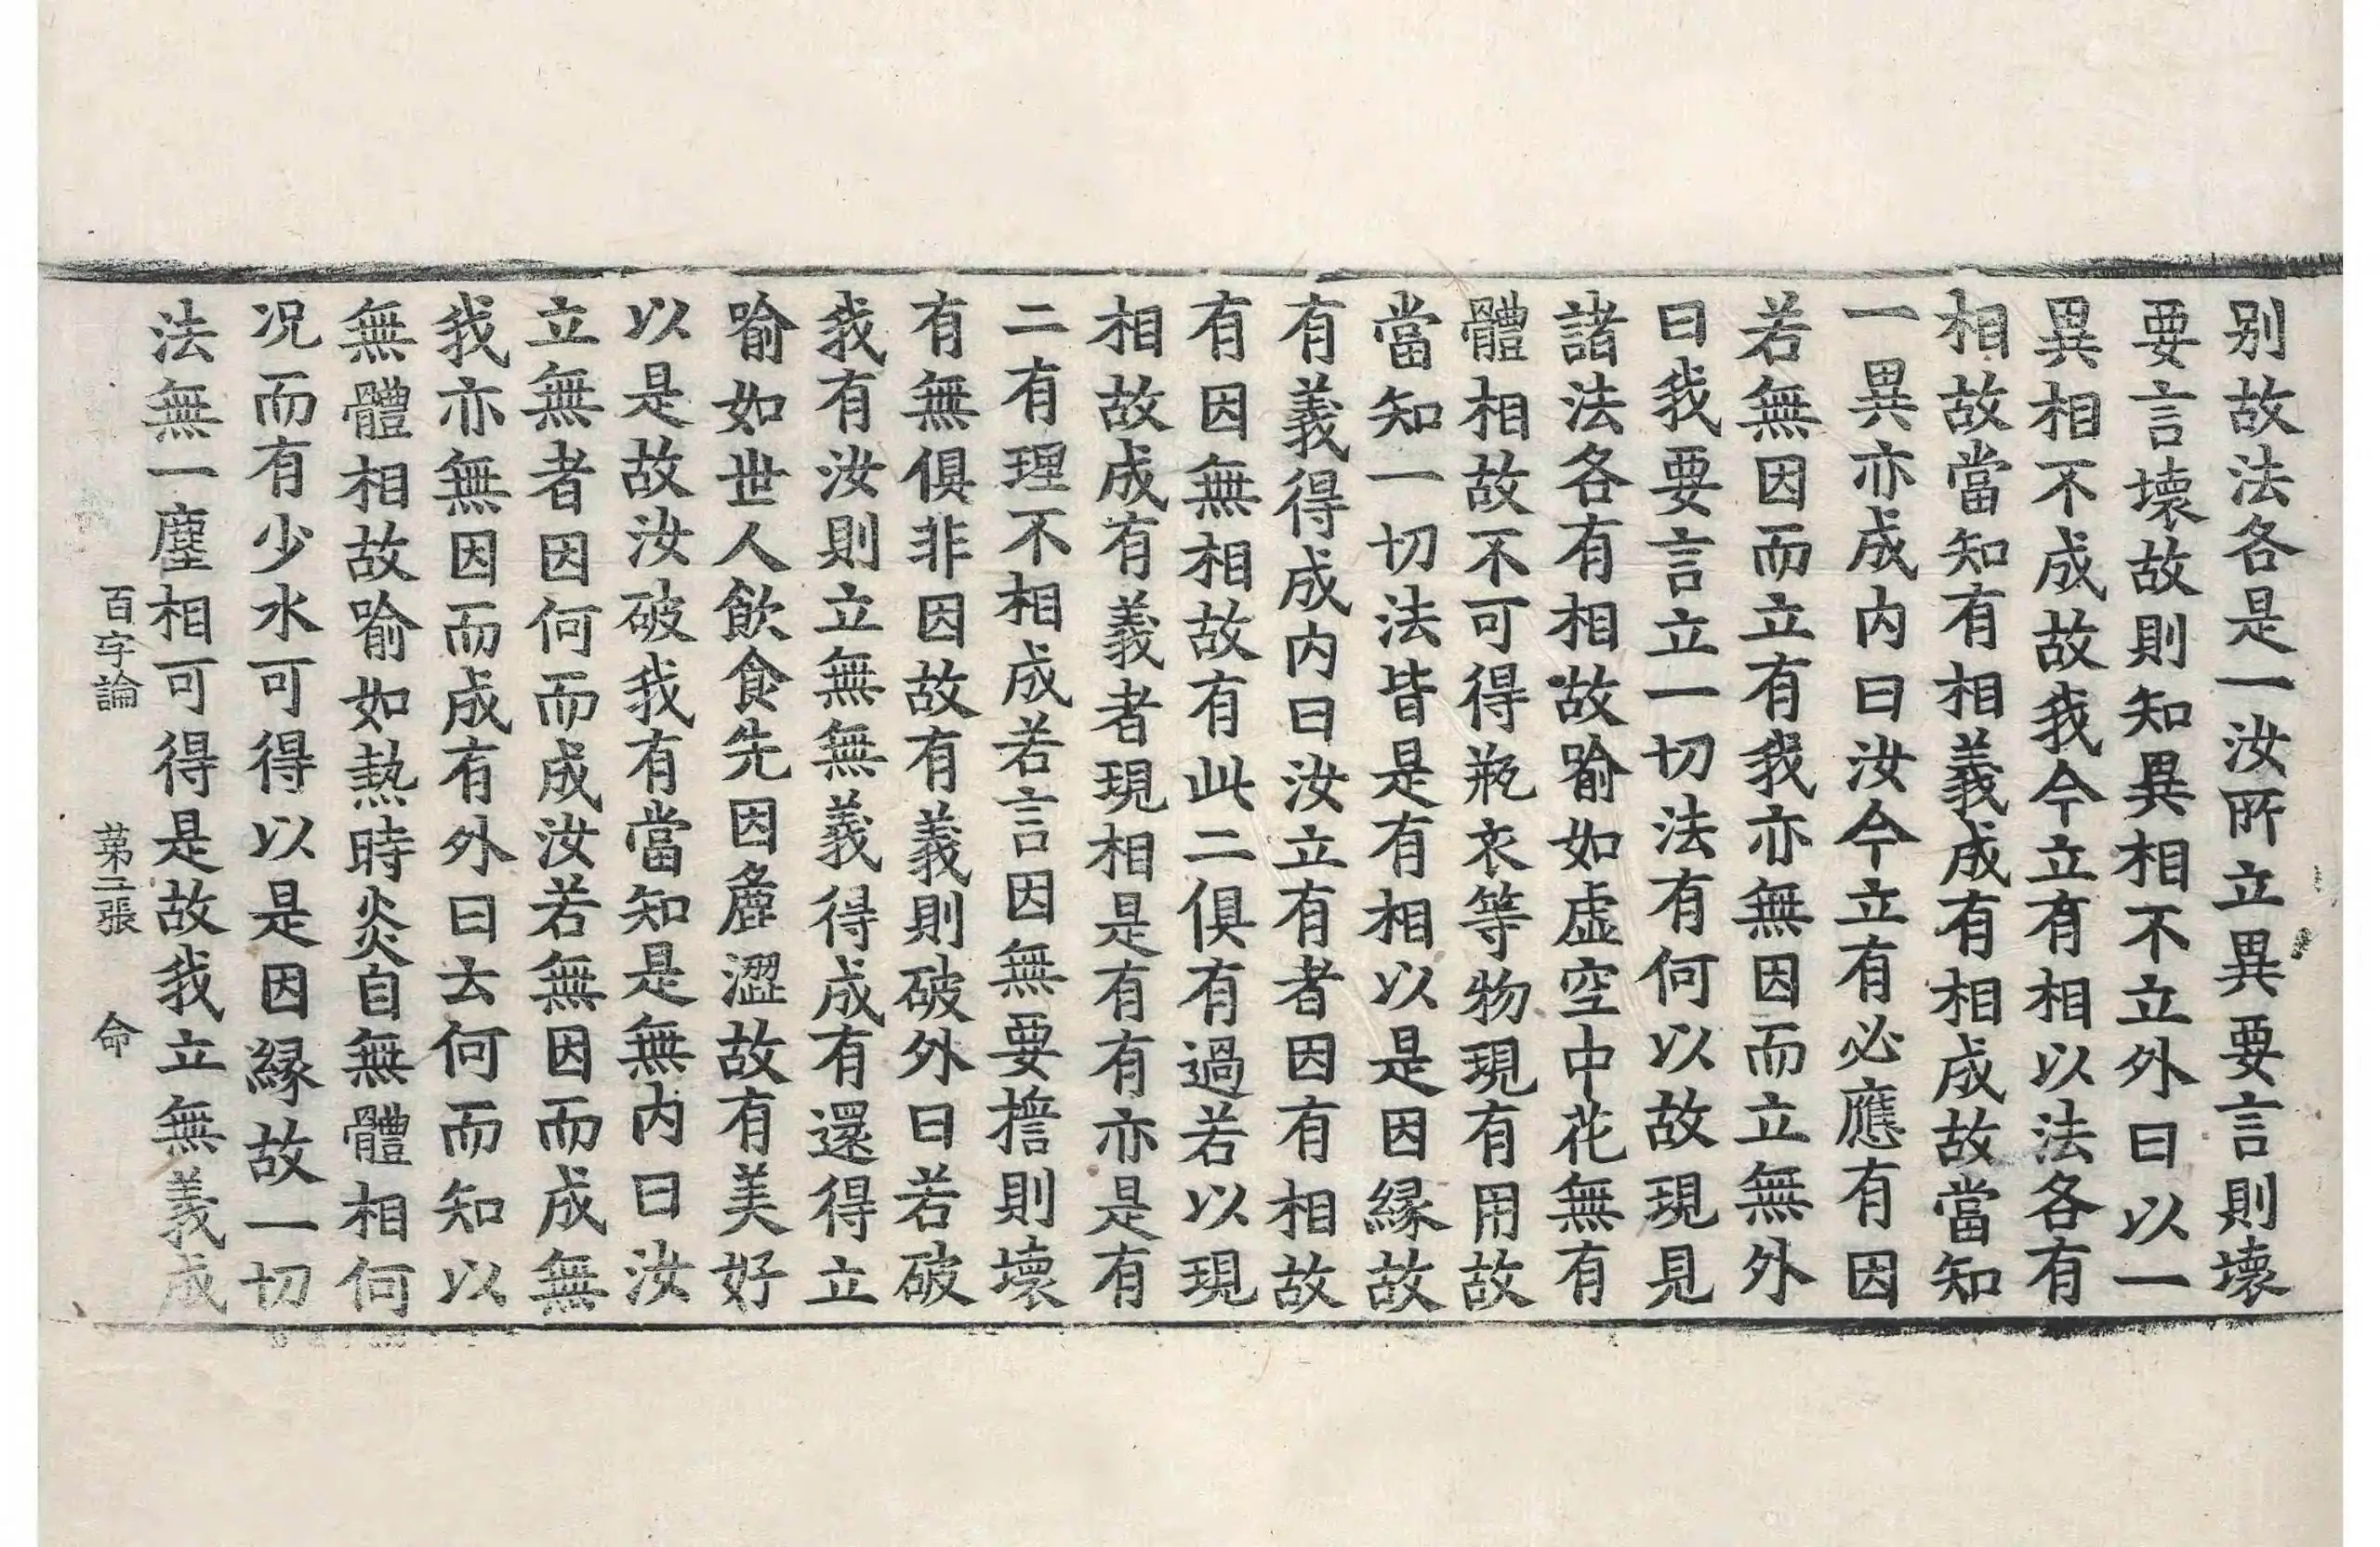 别故法各是一汝所立異要言則壞
要言壞故則知異相不立外曰以一
異相不成故我今立有相以法各有
相故當知有相義成有相成故當知
一異亦成内曰汝今立有必應有因
若無因而立有我亦無因而立無外
曰我要言立一切法有何以故現見
諸法各有相故喻如虛空中花無有
體相故不可得瓶衣等物現有用故
當知一切法皆是有相以是因緣故
有義得成内曰汝立有者因有相故
有因無相故有此二俱有過若以現
相故成有義者現相是有有亦是有
二有理不相成若言因無要擔則壞
有無俱非因故有義則破外曰若破
我有汝則立無無義得成有還得立
喻如世人飲食先因麁澀故有美好
以是故汝破我有當知是無内曰汝
立無者因何而成汝若無因而成無
我亦無因而成有外曰去何而知以
無體相故喻如熱時炎自無體相何
况而有少水可得以是因緣故一切
法無一塵相可得是故我立無義成
百字論 第二張 命